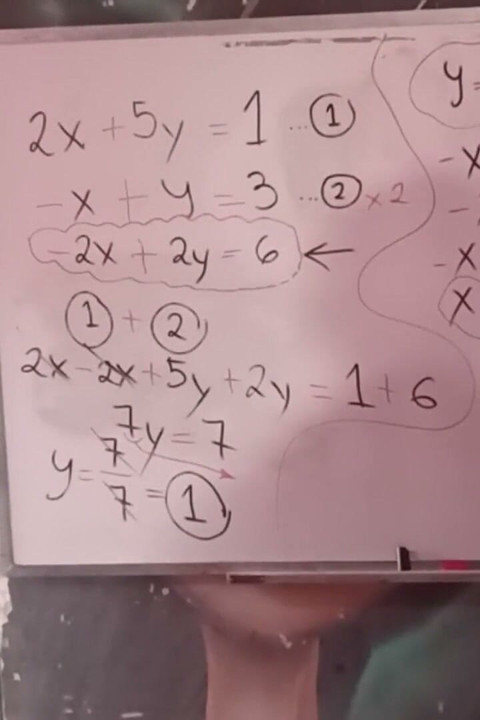 2x + 5y = 1 ... ①
-x + y = 3 ... ② x 2
-2x + 2y = 6 ←
① + ②
2x - 2x + 5y + 2y = 1 + 6
7y = 7
y = 7/7 = 1
y=
-x
-
-x
x